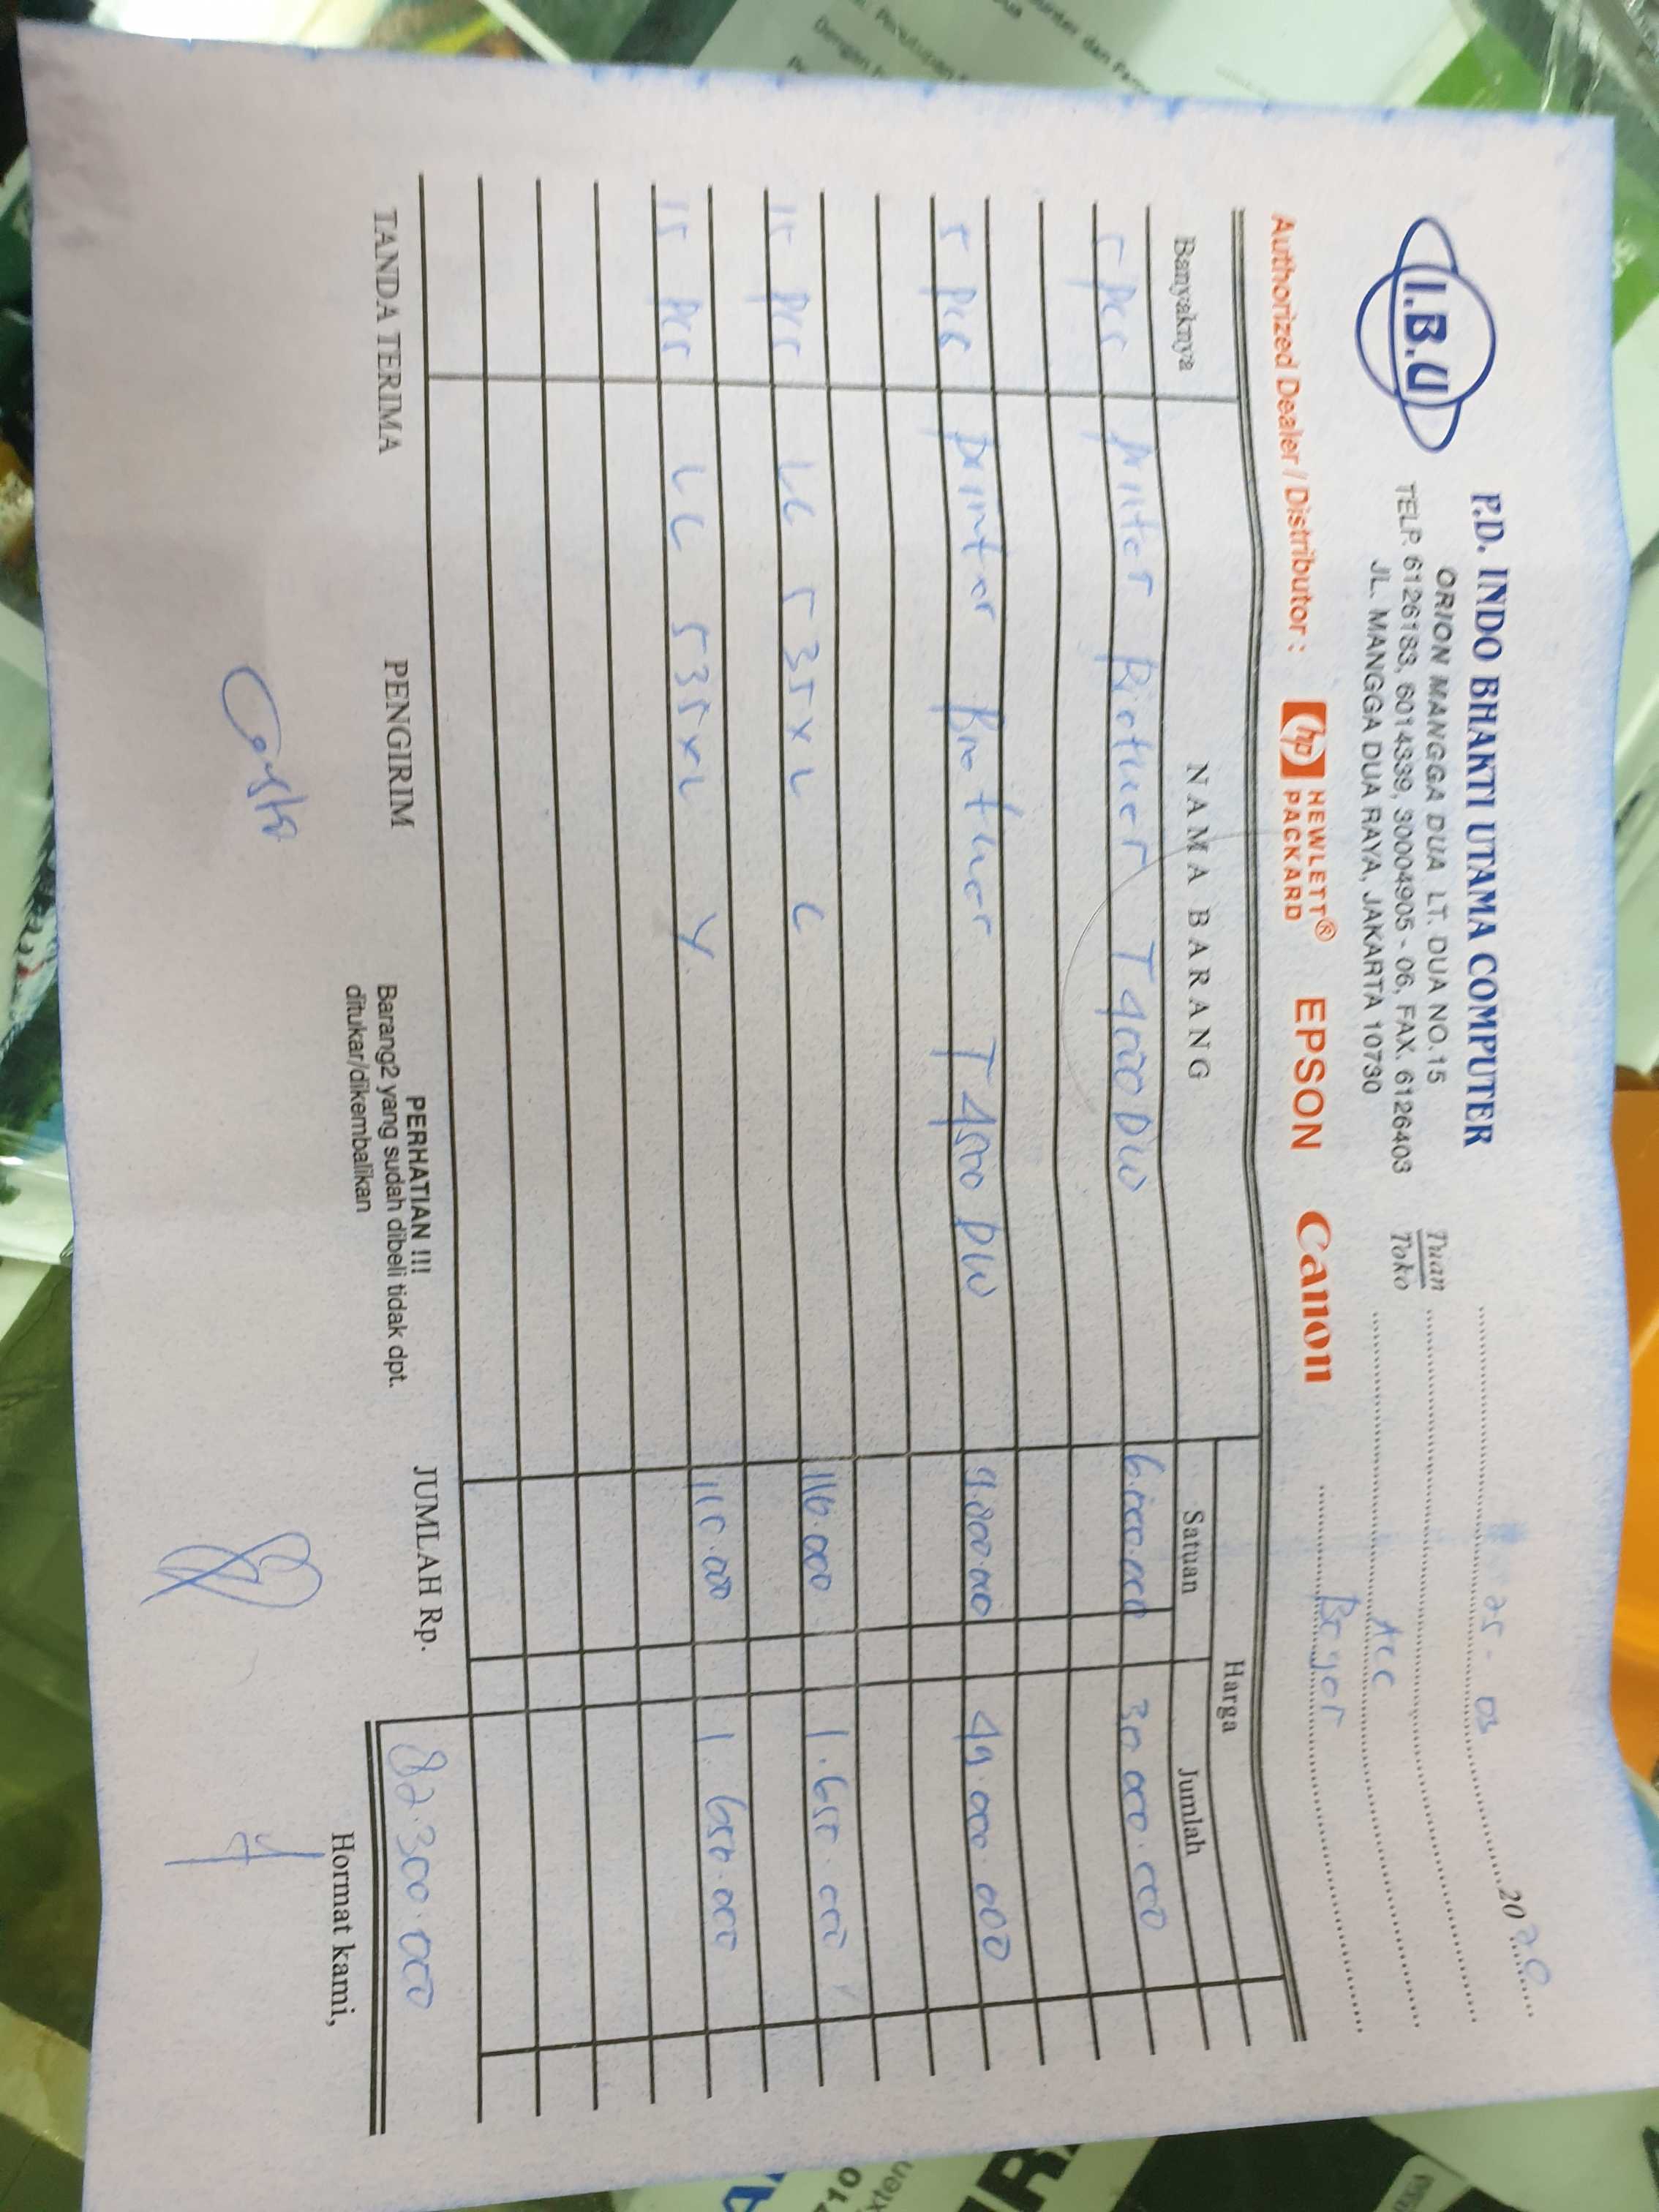 I.B.U
P.D. INDO BHAKTI UTAMA COMPUTER
ORION MANGGA DUA LT. DUA NO.15
TELP. 6126183, 6014339, 30004905 - 06, FAX. 6126403
JL. MANGGA DUA RAYA, JAKARTA 10730
25 - 03 2020
Tuan
Toko
ACC
Bogor
Authorized Dealer / Distributor : hp HEWLETT® PACKARD EPSON Canon
Banyaknya NAMA BARANG Harga
Satuan Jumlah
5 pcs printer Brother T4000DW 6.000.000 30.000.000
5 pcs printer Brother T4500 DW 9.800.000 49.000.000
15 pcs LC 535XL C 110.000 1.650.000
15 pcs LC 535XL Y 110.000 1.650.000
TANDA TERIMA PENGIRIM PERHATIAN !!! JUMLAH Rp. 82.300.000
Barang2 yang sudah dibeli tidak dpt.
ditukar/dikembalikan
Hormat kami,